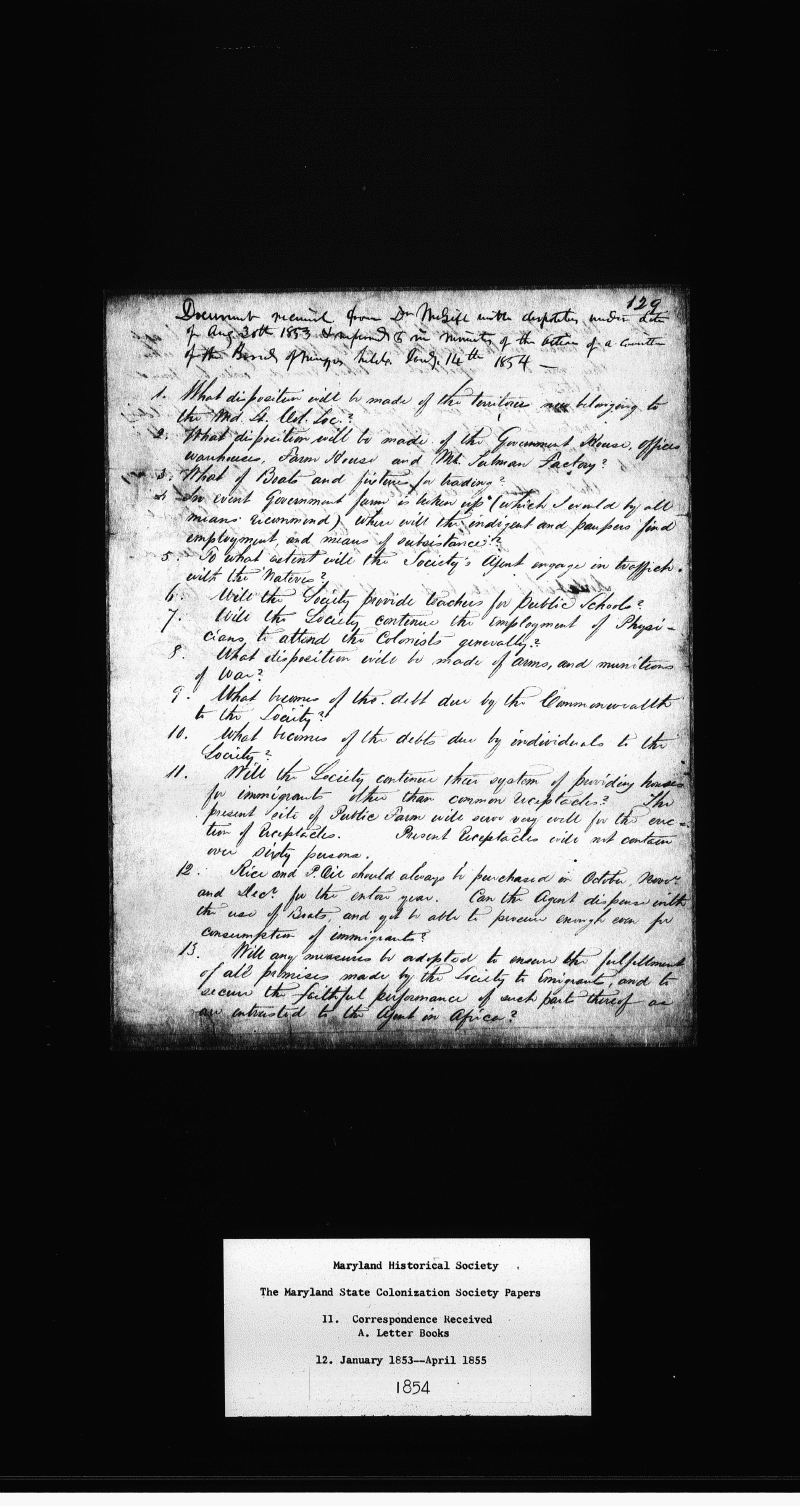 129
Document received from Dr McGill with despatches under date
of Aug 20th 1853 & referred to in minutes of the action of a
of the Board of held 14th 1854 —
1. What disposition will be made of the territories now belonging to
the Md. St. Col. Soc.?
2. What disposition will be made of the Government House, offices
warehouses, Farm House and Mt. Tubman Factory?
3. What of Boats and fixtures for trading?
4. In event Government farm is broken up (which I would by all
means recommend) where will the indigent and paupers find
employment and means of subsistance?
5. To what extent will the Society's Agent engage in traffick
with the Natives?
6. Will the Society provide teachers for Public Schools?
7. Will the Society continue the employment of Physi-
cians to attend the Colonists generally?
8. What disposition will be made of arms, and munitions
of War?
9. What becomes of the debt due by the Commonwealth
to the Society?
10. What becomes of the debts due by individuals to the
Society?
11. Will the Society continue their system of providing houses
for immigrants other than common receptacles? The
present site of Public Farm will serve very well for the erec-
tion of Receptacles. Present Receptacles will not contain
over sixty persons.
12. Rice and P. Oil should always be purchased in October, Novr.
and Decr. for the entire year. Can the Agent dispense with
the use of Boats, and yet be able to procure enough even for
consumption of immigrants?
13. Will any measures be adopted to ensure the fulfillment
of all promises made by the Society to Emigrants, and to
secure the faithful performance of such part thereof as
are intrusted to the Agent in Africa?
Maryland Historical Society
The Maryland State Colonization Society Papers
11. Correspondence Received
A. Letter Books
12. January 1853--April 1855
1854